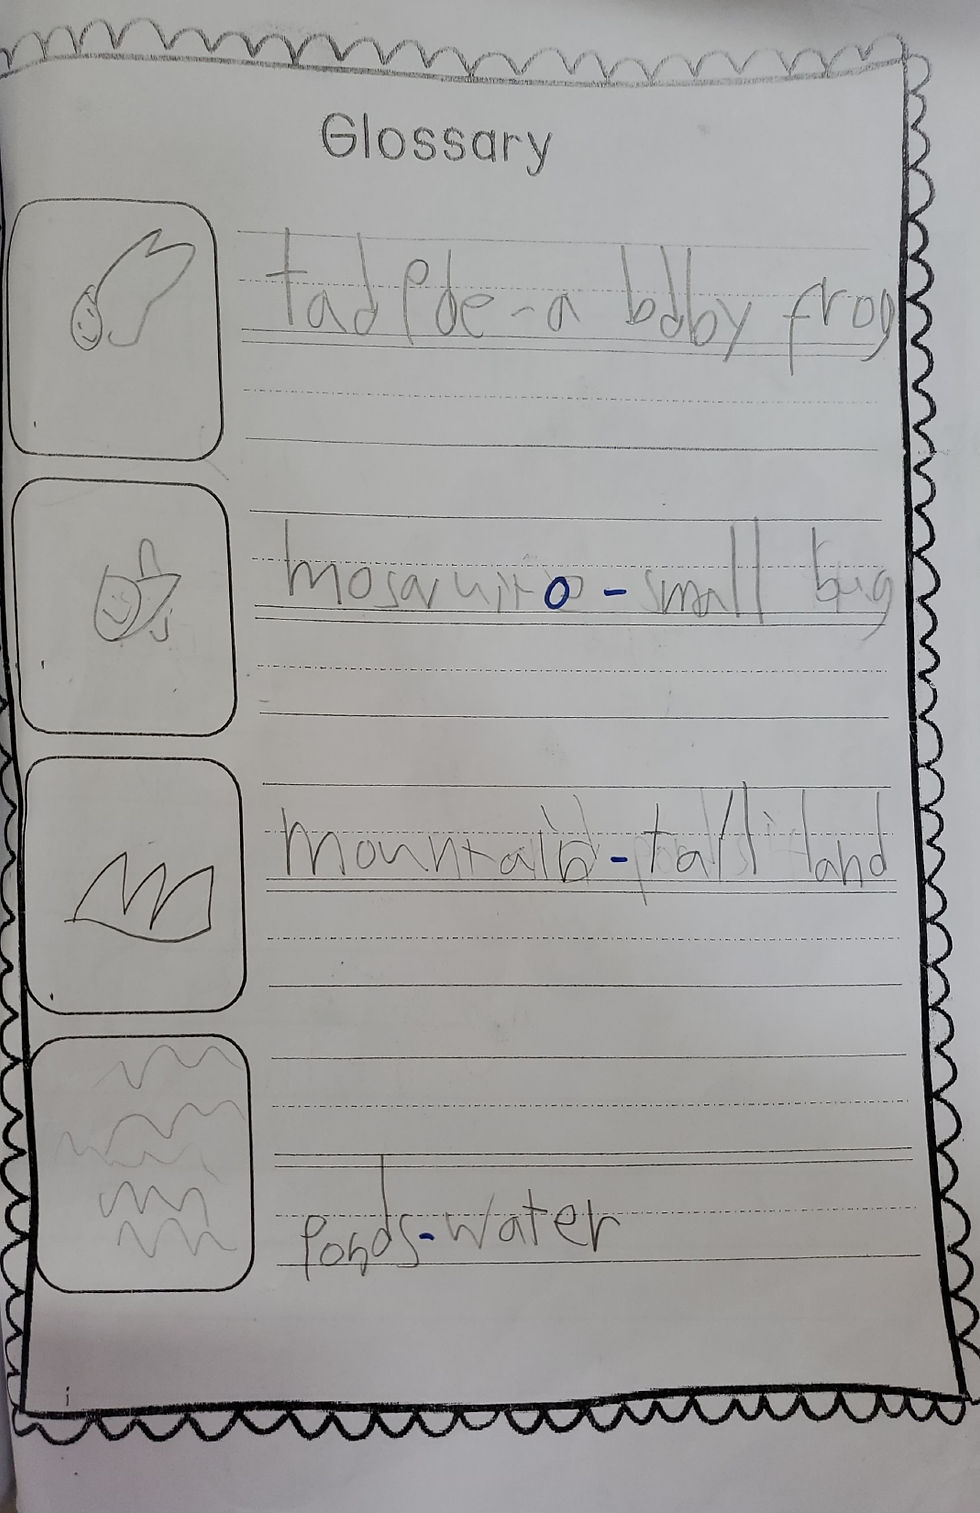 Glossary
tadpole - a baby frog
mosquito - small bug
mountain - tall land
Ponds - water